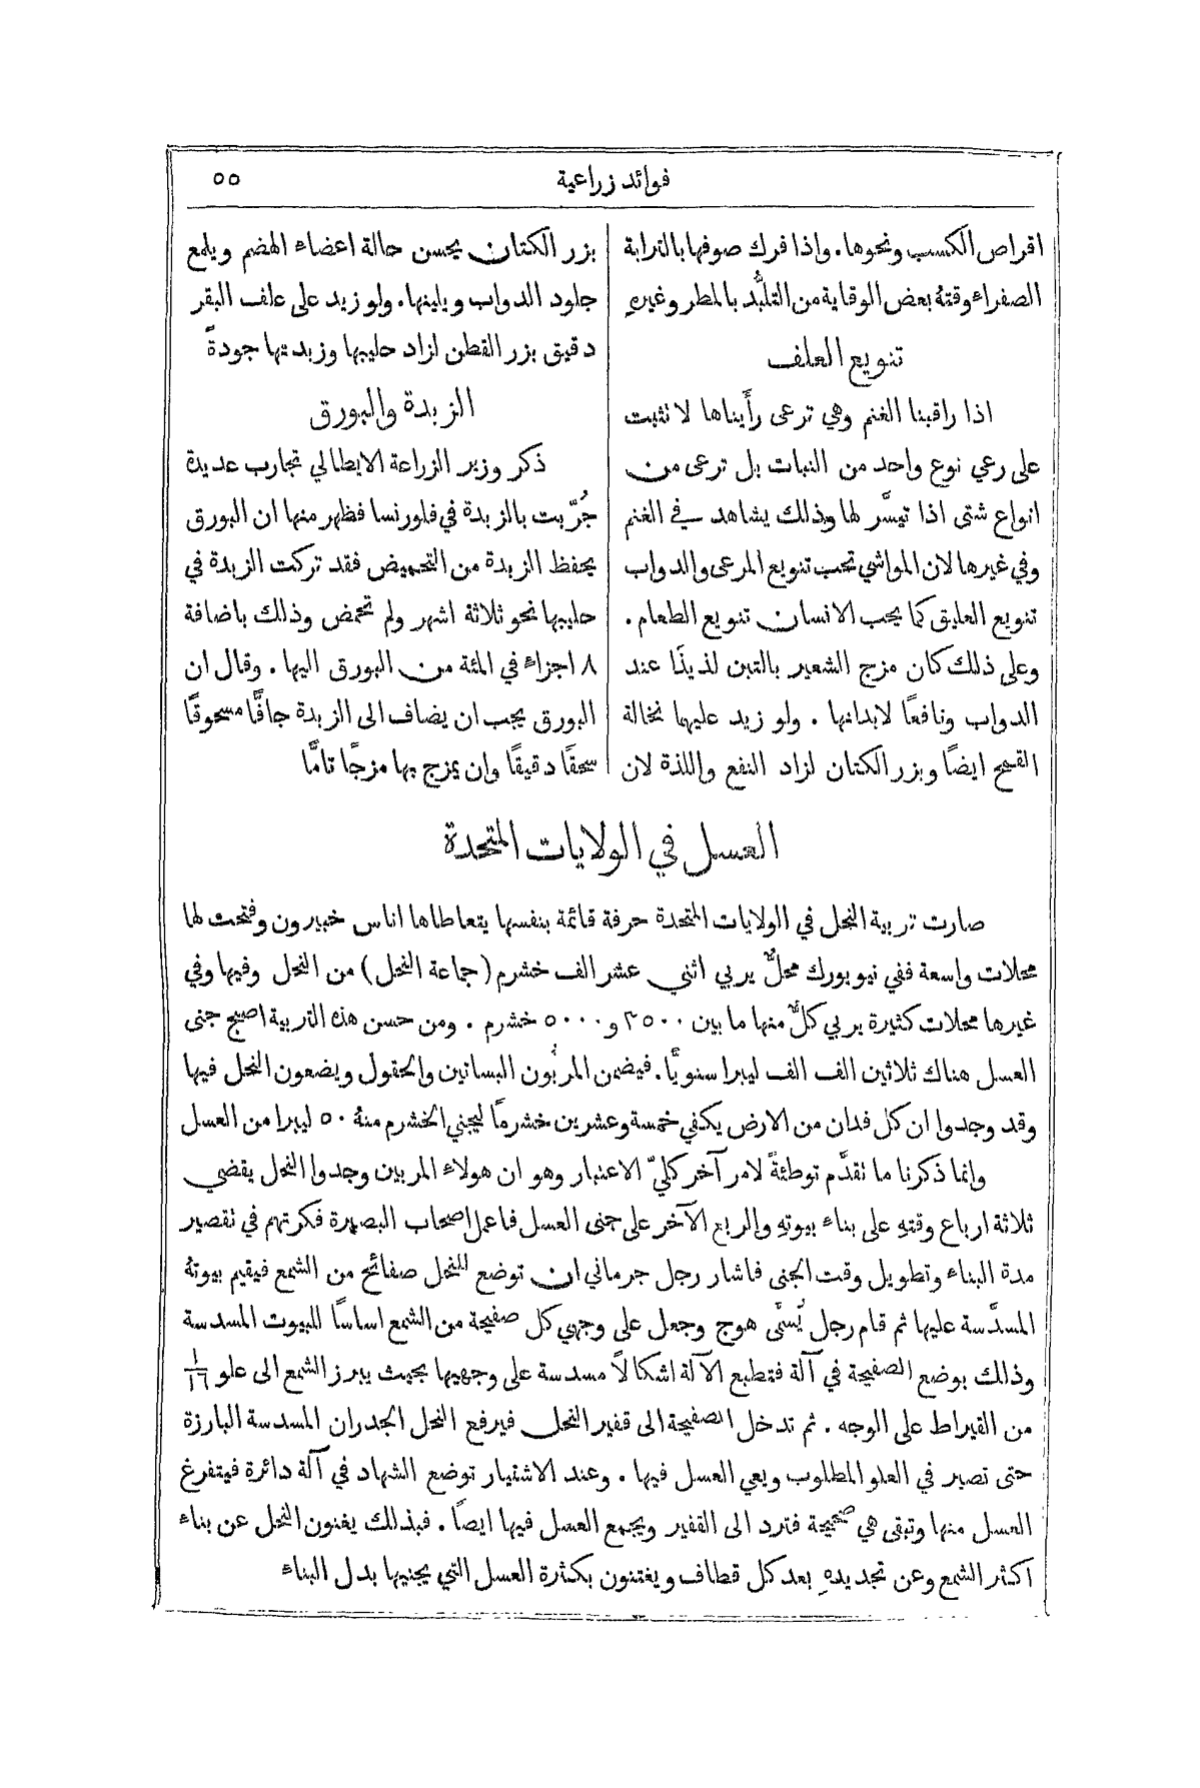 فوائد زراعية ٥٥
اقراص الكسب ونحوها. واذا فرك صوفها بالترابة
الصفراء وقتهُ بعض الوقاية من التلبُّد بالمطر وغيرهِ
تنويع العلف
اذا راقبنا الغنم وهي ترعى رأَيناها لا تثبت
على رعي نوع واحد من النبات بل ترعى من
انواع شتى اذا تيسَّر لها وذلك يشاهد في الغنم
وفي غيرها لان المواشي تحب تنويع المرعى والدواب
تنويع العليق كما يحب الانسان تنويع الطعام.
وعلى ذلك كان مزج الشعير بالتبن لذيذًا عند
الدواب ونافعًا لابدانها. ولو زيد عليها نخالة
القمح ايضًا وبزر الكتان لزاد النفع واللذة لان
بزر الكتان يحسن حالة اعضاء الهضم ويلمع
جلود الدواب ويلينها. ولو زيد على علف البقر
دقيق بزر القطن لزاد حليبها وزبدتها جودةً
الزبدة والبورق
ذكر وزير الزراعة الايطالي تجارب عديدة
جُرّبت بالزبدة في فلورنسا فظهر منها ان البورق
يحفظ الزبدة من التحميض فقد تركت الزبدة في
حليبها نحو ثلاثة اشهر ولم تحمض وذلك باضافة
٨ اجزاء في المئة من البورق اليها. وقال ان
البورق يجب ان يضاف الى الزبدة جافًّا مسحوقًا
سحقًا دقيقًا وان يمزج بها مزجًا تامًّا
العسل في الولايات المتحدة
صارت تربية النحل في الولايات المتحدة حرفة قائمة بنفسها يتعاطاها اناس خبيرون وفتحت لها
محلات واسعة ففي نيويورك محلٌّ يربي اثني عشر الف خشرم (جماعة النحل) من النحل وفيها وفي
غيرها محلات كثيرة يربي كلٌّ منها ما بين ٢٥٠٠ و٥٠٠٠ خشرم. ومن حسن هذه التربية اصبح جنى
العسل هناك ثلاثين الف الف ليبرا سنويًّا. فيضمن المربُّون البساتين والحقول ويضعون النحل فيها
وقد وجدوا ان كل فدان من الارض يكفي خمسة وعشرين خشرمًا ليجني الخشرم منهُ ٥٠ ليبرا من العسل
وانما ذكرنا ما تقدَّم توطئةً لامر آخر كليّ الاعتبار وهو ان هولاء المربين وجدوا النحل يقضي
ثلاثة ارباع وقتهِ على بناء بيوتهِ والربع الآخر على جنى العسل فاعمل اصحاب البصيرة فكرتهم في تقصير
مدة البناء وتطويل وقت الجنى فاشار رجل جرماني ان توضع للنحل صفائح من الشمع فيقيم بيوتهُ
المسدَّسة عليها ثم قام رجل يُسمَّى هوج وجعل على وجهي كل صفيحة من الشمع اساسًا للبيوت المسدسة
وذلك بوضع الصفيحة في آلة فتطبع الآلة اشكالاً مسدسة على وجهيها بحيث يبرز الشمع الى علو ١/١٦
من القيراط على الوجه. ثم تدخل الصفيحة الى قفير النحل فيرفع النحل الجدران المسدسة البارزة
حتى تصير في العلو المطلوب ويعي العسل فيها. وعند الاشتيار توضع الشهاد في آلة دائرة فيتفرغ
العسل منها وتبقى هي صحيحة فترد الى القفير ويجمع العسل فيها ايضًا. فبذلك يغنون النحل عن بناء
اكثر الشمع وعن تجديدهِ بعد كل قطاف ويغتنون بكثرة العسل التي يجنيها بدل البناء